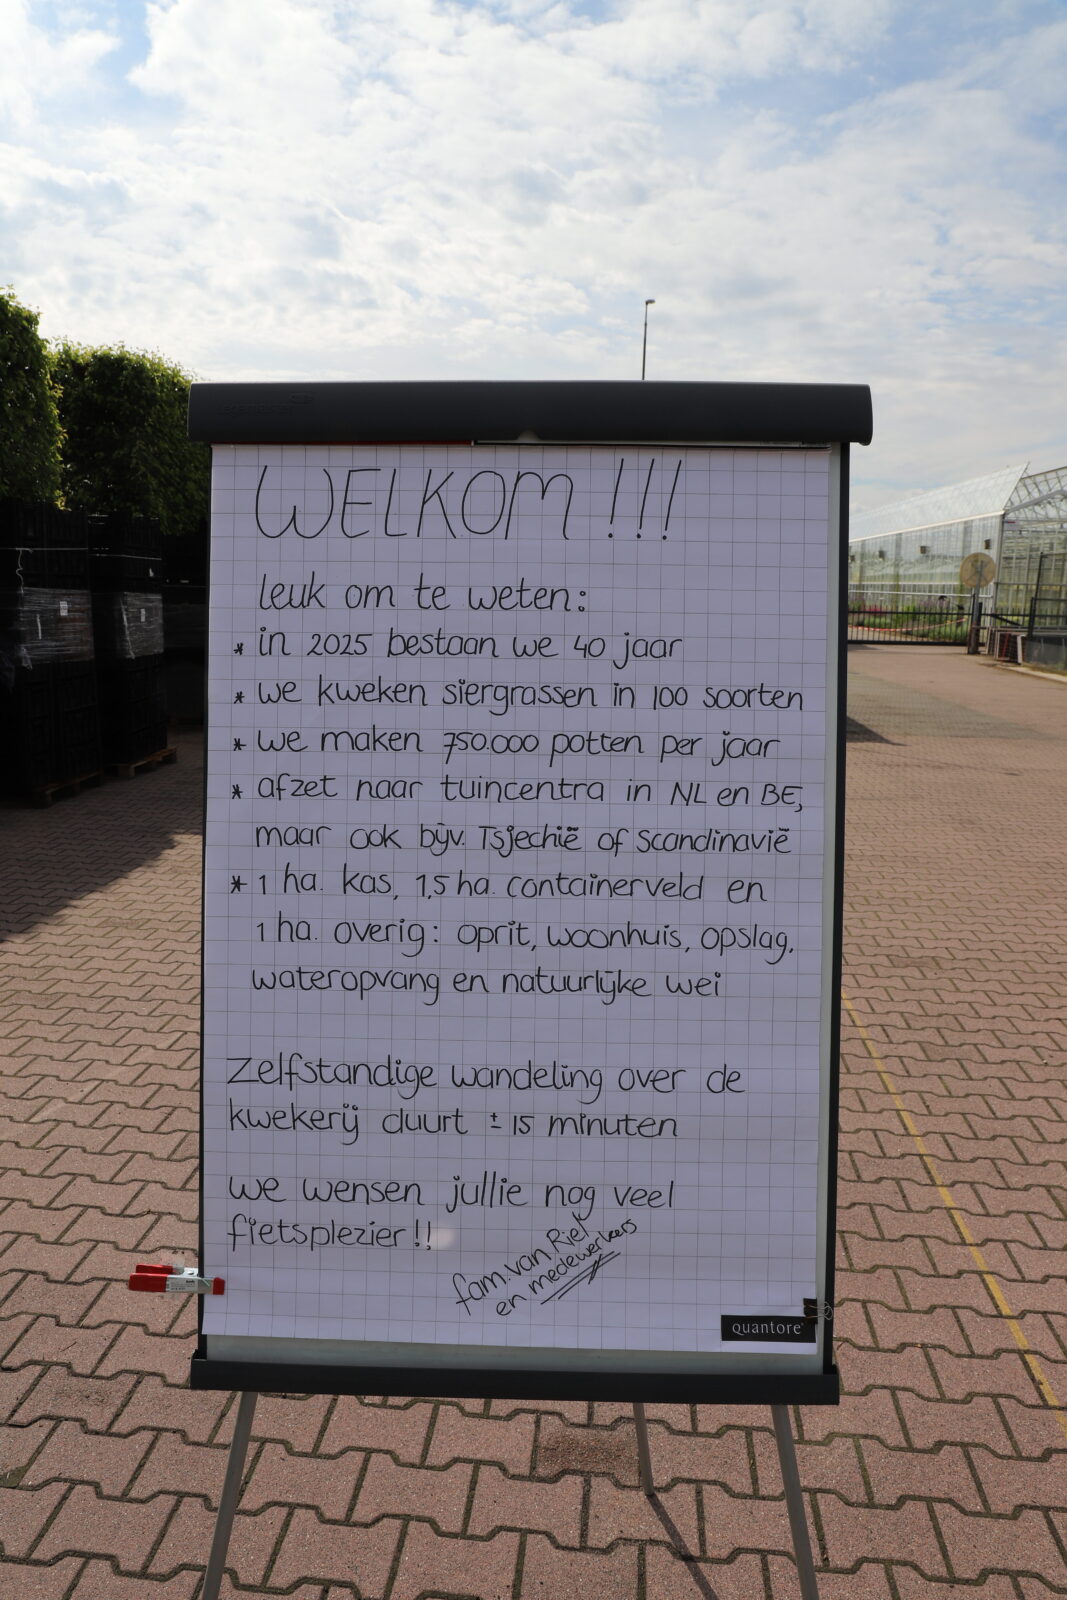 WELKOM !!!
leuk om te weten:
* in 2025 bestaan we 40 jaar
* we kweken siergrassen in 100 soorten
* we maken 750.000 potten per jaar
* afzet naar tuincentra in NL en BE,
maar ook bijv. Tsjechië of Scandinavië
* 1 ha. kas, 1,5 ha. containerveld en
1 ha. overig: oprit, woonhuis, opslag,
wateropvang en natuurlijke wei
Zelfstandige wandeling over de
kwekerij duurt ± 15 minuten
we wensen jullie nog veel
fietsplezier!!
fam. van Riel
en medewerkers
quantore